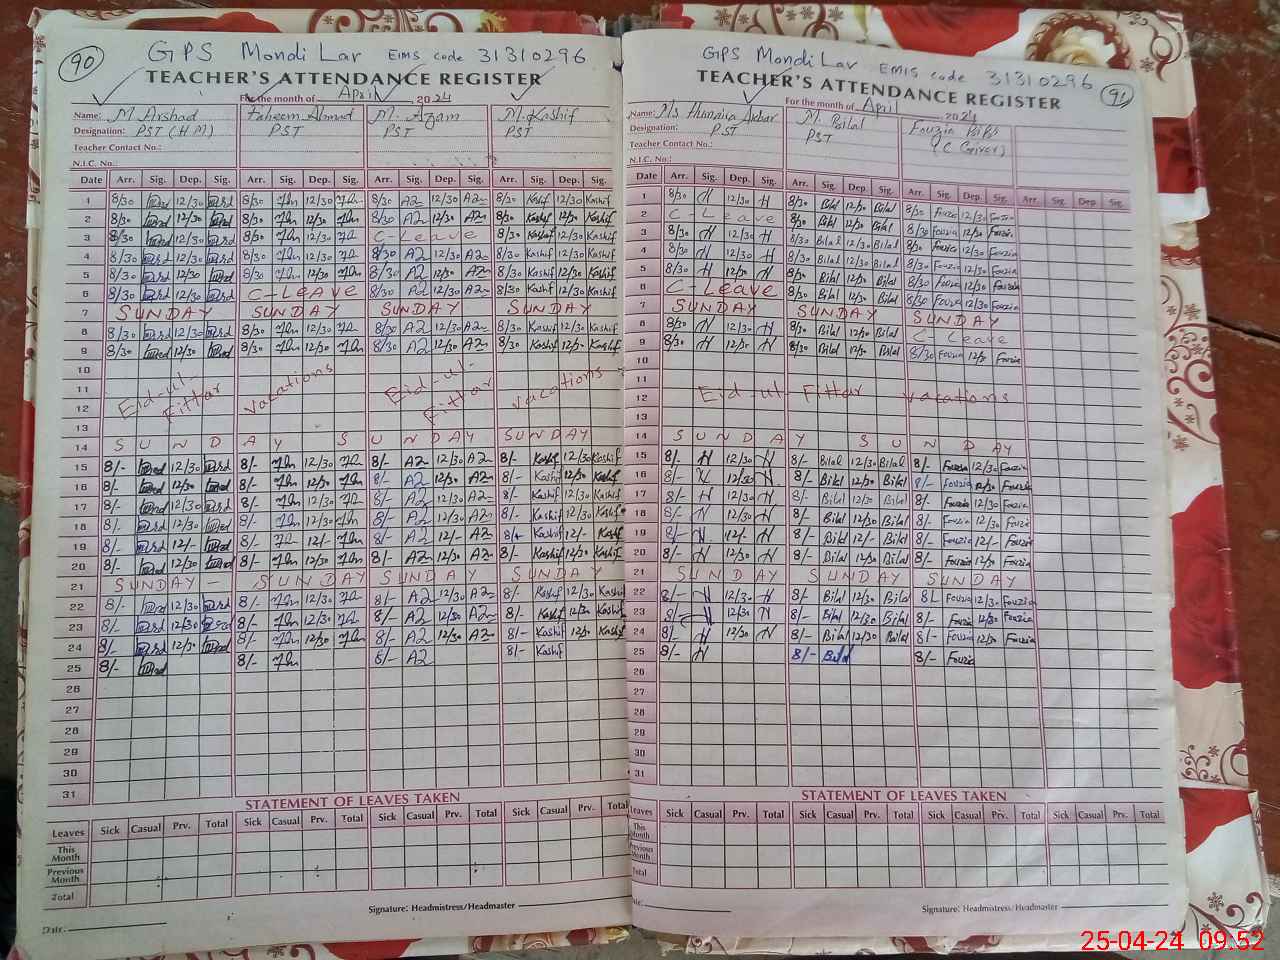 90
GPS Mondi Lar EMIS code 31310296
TEACHER'S ATTENDANCE REGISTER
For the month of April 2024
Name: M. Arshad Faheem Ahmad M. Azam M. Kashif
Designation: PST (H M) PST PST PST
Teacher Contact No.:
N.I.C. No.:
Date Arr. Sig. Dep. Sig. Arr. Sig. Dep. Sig. Arr. Sig. Dep. Sig. Arr. Sig. Dep. Sig.
1 8/30 12/30 8/30 12/30 8/30 A2 12/30 A2 8/30 Kashif 12/30 Kashif
2 8/30 12/30 8/30 12/30 8/30 A2 12/30 A2 8/30 Kashif 12/30 Kashif
3 8/30 12/30 8/30 12/30 C-Leave 8/30 Kashif 12/30 Kashif
4 8/30 12/30 8/30 12/30 8/30 A2 12/30 A2 8/30 Kashif 12/30 Kashif
5 8/30 12/30 8/30 12/30 8/30 A2 12/30 A2 8/30 Kashif 12/30 Kashif
6 8/30 12/30 C-LEAVE 8/30 A2 12/30 A2 8/30 Kashif 12/30 Kashif
7 SUNDAY SUNDAY SUNDAY SUNDAY
8 8/30 12/30 8/30 12/30 8/30 A2 12/30 A2 8/30 Kashif 12/30 Kashif
9 8/30 12/30 8/30 12/30 8/30 A2 12/30 A2 8/30 Kashif 12/30 Kashif
10
11 Eid-ul- vacations Eid-ul- vacations
12 Fittar Fittar
13
14 SUNDAY SUNDAY SUNDAY
15 8/- 12/30 8/- 12/30 8/- A2 12/30 A2 8/- Kashif 12/30 Kashif
16 8/- 12/30 8/- 12/30 8/- A2 12/30 A2 8/- Kashif 12/30 Kashif
17 8/- 12/30 8/- 12/30 8/- A2 12/30 A2 8/- Kashif 12/30 Kashif
18 8/- 12/30 8/- 12/30 8/- A2 12/30 A2 8/- Kashif 12/30 Kashif
19 8/- 12/- 8/- 12/- 8/- A2 12/- A2 8/- Kashif 12/- Kashif
20 8/- 12/30 8/- 12/30 8/- A2 12/30 A2 8/- Kashif 12/30 Kashif
21 SUNDAY - SUNDAY SUNDAY SUNDAY
22 8/- 12/30 8/- 12/30 8/- A2 12/30 A2 8/- Kashif 12/30 Kashif
23 8/- 12/30 8/- 12/30 8/- A2 12/30 A2 8/- Kashif 12/30 Kashif
24 8/- 12/30 8/- 12/30 8/- A2 12/30 A2 8/- Kashif 12/30 Kashif
25 8/- 8/- 8/- A2 8/- Kashif
26
27
28
29
30
31
STATEMENT OF LEAVES TAKEN
Leaves Sick Casual Prv. Total Sick Casual Prv. Total Sick Casual Prv. Total Sick Casual Prv. Total
This Month
Previous Month
Total
Signature: Headmistress/Headmaster
Date:
91
GPS Mondi Lar EMIS code 31310296
TEACHER'S ATTENDANCE REGISTER
For the month of April 2024
Name: Ms Humaira Akbar M. Bilal Fouzia BiBi
Designation: PST PST (C Giver)
Teacher Contact No.:
N.I.C. No.:
Date Arr. Sig. Dep. Sig. Arr. Sig. Dep. Sig. Arr. Sig. Dep. Sig. Arr. Sig. Dep. Sig.
1 8/30 H 12/30 H 8/30 Bilal 12/30 Bilal 8/30 Fouzia 12/30 Fouzia
2 C-Leave 8/30 Bilal 12/30 Bilal 8/30 Fouzia 12/30 Fouzia
3 8/30 H 12/30 H 8/30 Bilal 12/30 Bilal 8/30 Fouzia 12/30 Fouzia
4 8/30 H 12/30 H 8/30 Bilal 12/30 Bilal 8/30 Fouzia 12/30 Fouzia
5 8/30 H 12/30 H 8/30 Bilal 12/30 Bilal 8/30 Fouzia 12/30 Fouzia
6 C-Leave 8/30 Bilal 12/30 Bilal 8/30 Fouzia 12/30 Fouzia
7 SUNDAY SUNDAY SUNDAY
8 8/30 H 12/30 H 8/30 Bilal 12/30 Bilal C- Leave
9 8/30 H 12/30 H 8/30 Bilal 12/30 Bilal 8/30 Fouzia 12/30 Fouzia
10
11 Eid-ul- Fittar vacations
12
13
14 SUNDAY SUNDAY
15 8/- H 12/30 H 8/- Bilal 12/30 Bilal 8/- Fouzia 12/30 Fouzia
16 8/- H 12/30 H 8/- Bilal 12/30 Bilal 8/- Fouzia 12/30 Fouzia
17 8/- H 12/30 H 8/- Bilal 12/30 Bilal 8/- Fouzia 12/30 Fouzia
18 8/- H 12/30 H 8/- Bilal 12/30 Bilal 8/- Fouzia 12/30 Fouzia
19 8/- H 12/- H 8/- Bilal 12/- Bilal 8/- Fouzia 12/- Fouzia
20 8/- H 12/30 H 8/- Bilal 12/30 Bilal 8/- Fouzia 12/30 Fouzia
21 SUNDAY SUNDAY SUNDAY
22 8/- H 12/30 H 8/- Bilal 12/30 Bilal 8/- Fouzia 12/30 Fouzia
23 8/- H 12/30 H 8/- Bilal 12/30 Bilal 8/- Fouzia 12/30 Fouzia
24 8/- H 12/30 H 8/- Bilal 12/30 Bilal 8/- Fouzia 12/30 Fouzia
25 8/- H 8/- Bilal 8/- Fouzia
26
27
28
29
30
31
STATEMENT OF LEAVES TAKEN
Leaves Sick Casual Prv. Total Sick Casual Prv. Total Sick Casual Prv. Total Sick Casual Prv. Total
This Month
Previous Month
Total
Signature: Headmistress/Headmaster
25-04-24 09:52